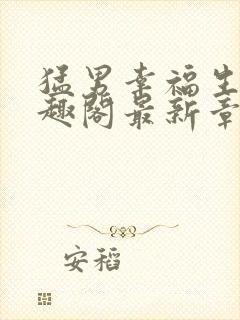 猛男幸福生
趣阁最新章
安稻